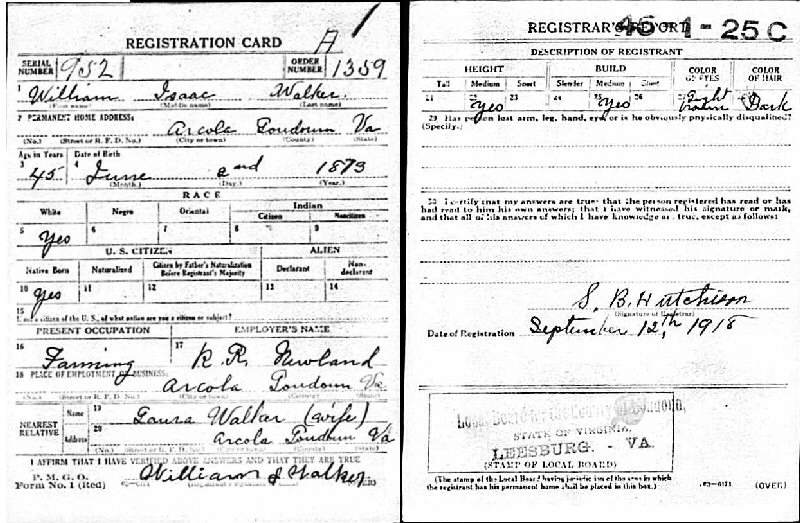 REGISTRATION CARD A 1
SERIAL NUMBER 952 ORDER NUMBER 1359
1 William Isaac Walker
(First name) (Middle name) (Last name)
2 PERMANENT HOME ADDRESS:
Arcola Loudoun Va
(No.) (Street or R. F. D. No.) (City or town) (County) (State)
Age in Years Date of Birth
3 45 4 June 2nd 1873
(Month.) (Day.) (Year.)
RACE
White Negro Oriental Indian
Citizen Noncitizen
5 Yes 6 7 8 9
U. S. CITIZEN ALIEN
Native Born Naturalized Citizen by Father's Naturalization Before Registrant's Majority Declarant Non-declarant
10 Yes 11 12 13 14
15
If not a citizen of the U. S., of what nation are you a citizen or subject?
PRESENT OCCUPATION EMPLOYER'S NAME
16 Farming 17 R. R. Newland
18 PLACE OF EMPLOYMENT OR BUSINESS:
Arcola Loudoun Va
(No.) (Street or R. F. D. No.) (City or town) (County) (State)
NEAREST RELATIVE Name 19 Laura Walker (wife)
Address 20 Arcola Loudoun Va
(No.) (Street or R. F. D. No.) (City or town) (County) (State)
I AFFIRM THAT I HAVE VERIFIED ABOVE ANSWERS AND THAT THEY ARE TRUE
P. M. G. O.
Form No. 1 (Red) William I Walker
REGISTRAR'S REPORT 45-1-25 C
DESCRIPTION OF REGISTRANT
HEIGHT BUILD COLOR OF EYES COLOR OF HAIR
Tall Medium Short Slender Medium Stout
21 22 Yes 23 24 25 Yes 26 Light brown Dark
29 Has person lost arm, leg, hand, eye, or is he obviously physically disqualified?
(Specify.)
30 I certify that my answers are true; that the person registered has read or has
had read to him his own answers; that I have witnessed his signature or mark,
and that all of his answers of which I have knowledge are true, except as follows:
S. B. Hutchison
(Signature of Registrar)
Date of Registration September 12th, 1918
Local Board for the County of Loudoun,
STATE OF VIRGINIA,
LEESBURG, - VA.
(STAMP OF LOCAL BOARD)
(The stamp of the Local Board having jurisdiction of the area in which
the registrant has his permanent home shall be placed in this box.)
(OVER)